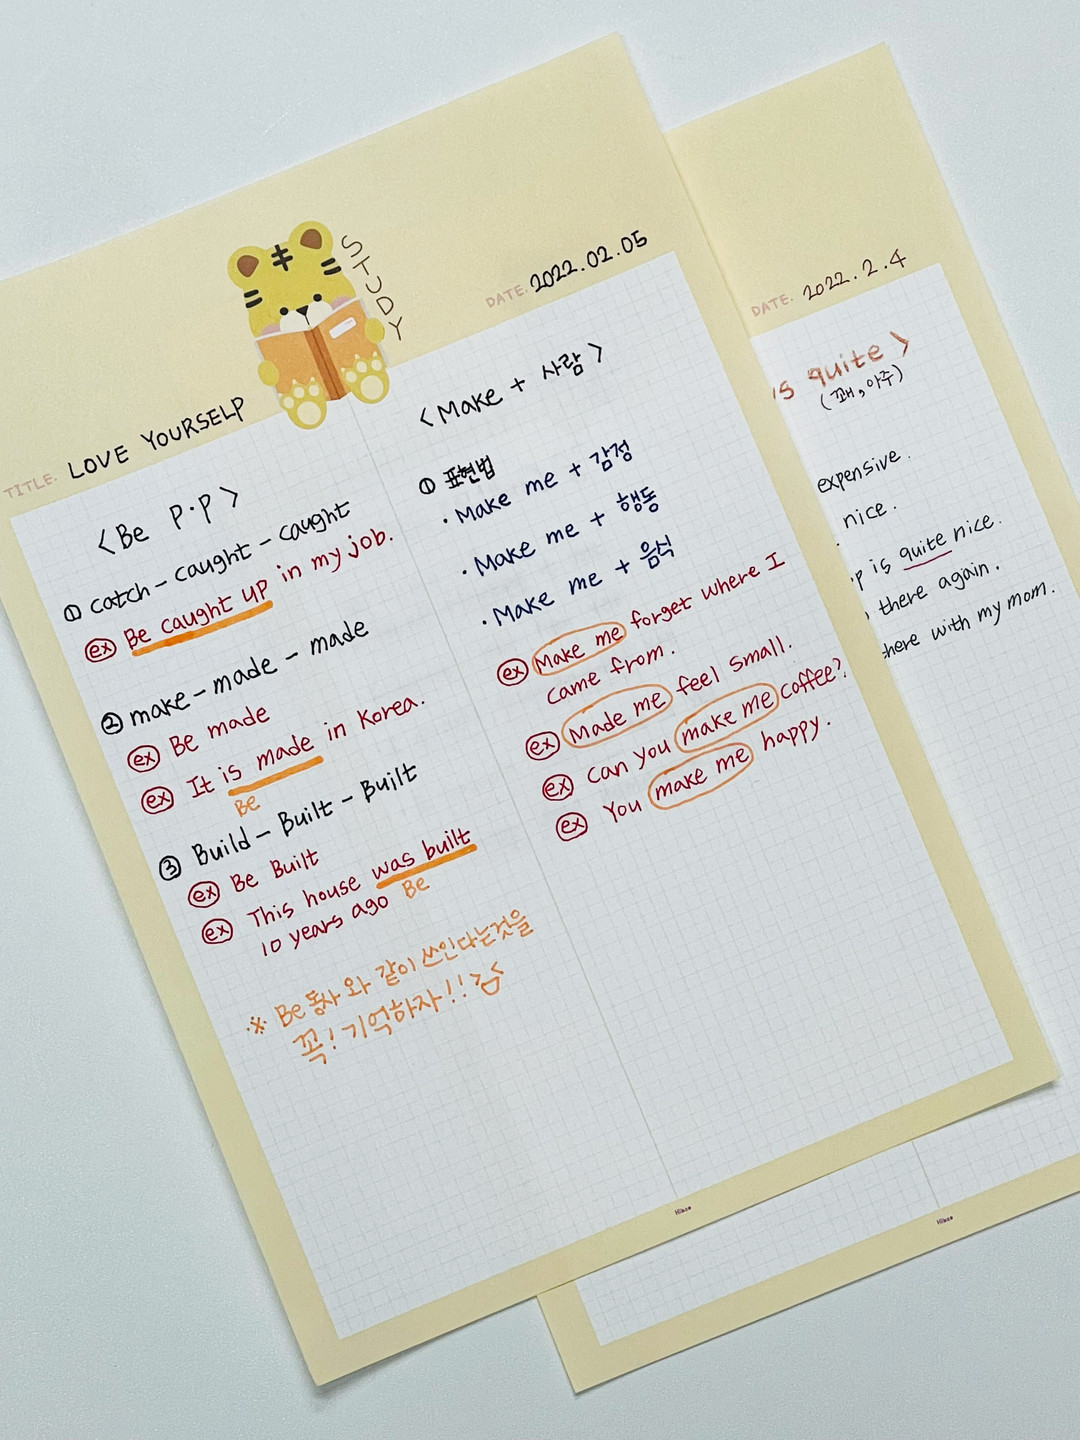 STUDY
DATE. 2022.02.05
TITLE. LOVE YOURSELF
<Be P.P>
① catch - caught - caught
ex Be caught up in my job.
② make - made - made
ex Be made
ex It is made in Korea.
Be
③ Build - Built - Built
ex Be Built
ex This house was built
Be
10 years ago
※ Be동사 와 같이 쓰인다는것을
꼭! 기억하자!!
<Make + 사람>
① 표현법
· Make me + 감정
· Make me + 행동
· Make me + 음식
ex Make me forget where I
came from.
ex Made me feel small.
ex Can you make me coffee?
ex You make me happy.
DATE. 2022.2.4
is quite >
(꽤, 아주)
expensive.
nice.
p is quite nice.
there again.
here with my mom.